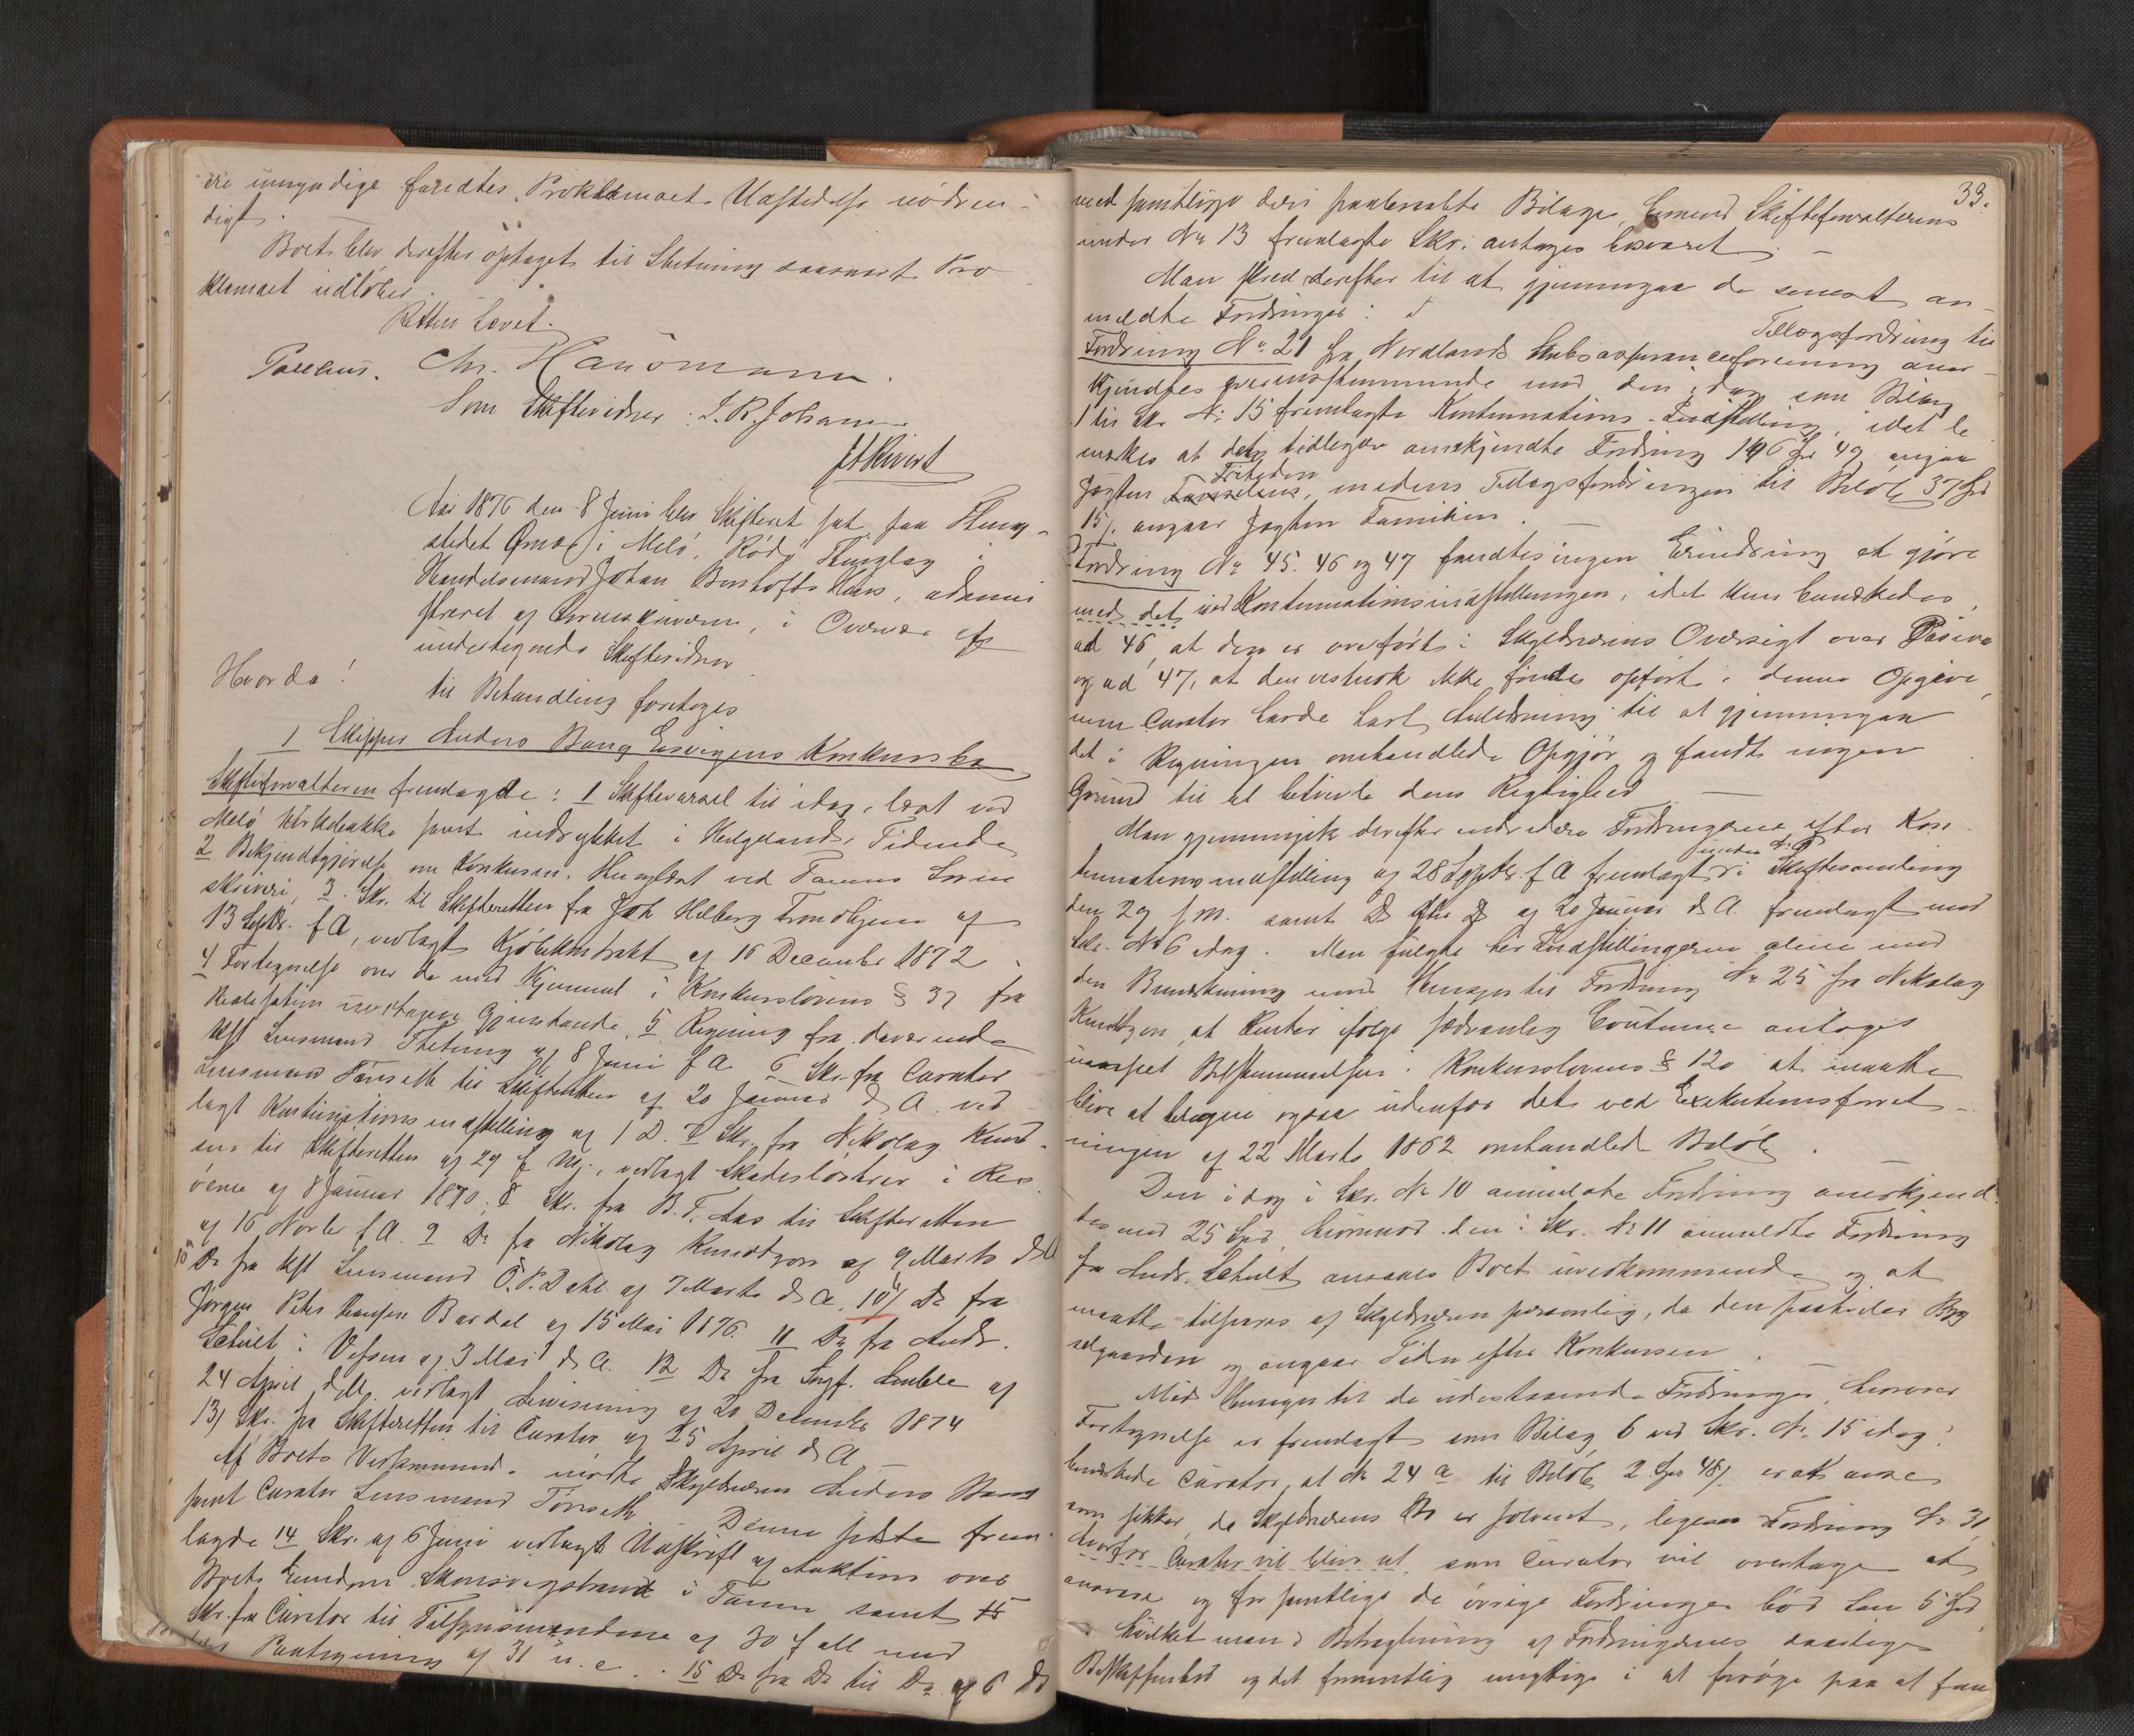 ere umyndige fandtes Proklamaets Udstedelse nødven-
digt.
Boet blev derefter optaget til Slutning saasnart Pro-
klamaet udløber.
Retten hævet.
Chr. Hansmann.
Som Skiftevidner: J. R. Johansen
Aar 1876 den 8 Juni blev Skifteret sat paa Thing-
stedet Ørnes i Melø, Rødø Thinglag i
Handelsmand Johan Hus, admini
streret af Sorenskriveren, i Overvær af
undertegnede Skiftevidner
Hvorda!
til Behandling foretoges
1 Skipper Anders Bang Konkursbo
Skifteforvalteren fremlagde: 1 Skiftevarsel til idag, læst ved
Melø Kirkebakke samt indrykket i Helgelands Tidende
2 Bekjendtgjørelse om Konkursen. Thinglæst ved
skriveri, 3 Skr. til Skifteretten fra Joh Hilberg Trondhjem af
13 Septbr. f A, vedlagt Kjøbekontrakt af 16 December 1872
4 Fortegnelse over de med Hjemmel i Konkurslovens § 37 fra
Realisation undtagne Gjenstande, 5 Regning fra daværende
Kst Lensmand af 8 Juni f A. 6 Skr. fra Curator
Lensmand Tønseth til Skifteretten af 20 Januar d A. ved
lagt af 1 D. 7 Skr. fra Nikolay Knud-
sen til Skifteretten af 29 f M., vedlagt Skadesløsbrev i
af 8 Januar 1870, 8 Skr. fra B. F. Aas til Skifteretten
af 16 Novbr f A. 9 Do fra Nikolay Knudtzon af 9 Marts d A
10a Do fra Kst Lensmand O. P. Dahl af 7 Marts d A, 10b/ Do fra
Jørgen Peter Hansen Bardal af 15 Mai 1876. 11 Do fra Andr.
Schult i Vefsen af 3 Mai d A. 12 Do fra af
24 April d A. vedlagt af 20 December 1874
13/ Skr. fra Skifteretten til Curator af 25 April d A.
Af Boets Vedkommende mødte Skyldneren Anders Bang
samt Curator Lensmand Tønseth. Denne sidste frem-
lagde 14 Skr. af 6 Juni vedlagt Udskrift af Auktion over
Boets Eiendom i samt 15
Skr. fra Curator til Tilsynsmændene af 30 f M med
af 31 15 Do fra Do til Do af 6 ds
33.
med samtlige deri paaberaabte Bilage, hvormed Skifteforvalterens
under No 13 fremlagte Skr. antages besvaret.
Man skred derefter til at gjennemgaa de senest an-
meldte Fordringer:
Tillægsfordring til
Fordring No. 21 fra Nordlands Skibsassuranceforening aner-
kjendtes overensstemmende med den idag som Bilag
1 til Skr. No 15 fremlagte Kontinuations-Indstilling, idet be
mærkes at den tidligere anerkjendte Fordring 146 Spd 49 angaar
Friheden
Jagten , medens Tillægsfordringen til Beløb 37 Spd
15/. angaar Jagten Familien.
Fordring No 45. 46 og 47 fandtes ingen Erindring at gjøre
med det ved Kontinuationsindstillingen, idet kun bemærkedes,
ad 46, at den er overført i Skyldnerens Oversigt over Passiva
og ad 47, at den vistnok ikke findes opført i denne Opgave,
men Curator havde havt Anledning til at gjennemgaa
det i Regningen omhandlede Opgjør og fandt ingen
Grund til at betvivle dens Rigtighed.
Man gjennemgik derefter Fordringerne efter Kon-
tinuationsindstilling af 28 Septbr. f A fremlagt i Skiftesamling
den 29 s M. samt Do Do af 20 Januar d A. fremlagt med
Skr. No 6 idag. Man fulgte her Indstillingerne alene med
den Bemærkning med Hensyn til Fordring No 25 fra Nikolay
Knudtzon, at Renter ifølge sædvanlig Coutume antages
uanseet Bestemmelsen i Konkurslovens § 120 at maatte
blive at beregne ogsaa udenfor det ved Exekutionsforret-
ningen af 22 Marts 1862 omhandlede Beløb.
Den i dag i Skr. No 10 anmeldte Fordring anerkjend-
tes med 25 Spd, hvorimod den i Skr. No 11 anmeldte Fordring
fra Andr. Schult ansaaes Boet uvedkommende og at
maatte tilsvares af Skyldneren personlig, da den paahviler Byg
selgaarden og angaar Tiden efter Konkursen.
Med Hensyn til de udestaaende Fordringer, hvorover
Fortegnelse er fremlagt som Bilag 6 ved Skr. No. 15 idag,
bemærkede Curator, at No 24 a til Beløb 2 Spd 48/. er at anse
som sikker, da Skyldnerens Bo er solvent, ligesaa Fordring No 31,
hvorfor Curator vil blive at, som Curator vil overtage at
ansvare og for samtlige de øvrige Fordringer bød han 5 Spd
hvilket man i Betragtning af Fordringernes daarlige
Beskaffenhed og det formentlig unyttige i at forsøge paa at faa